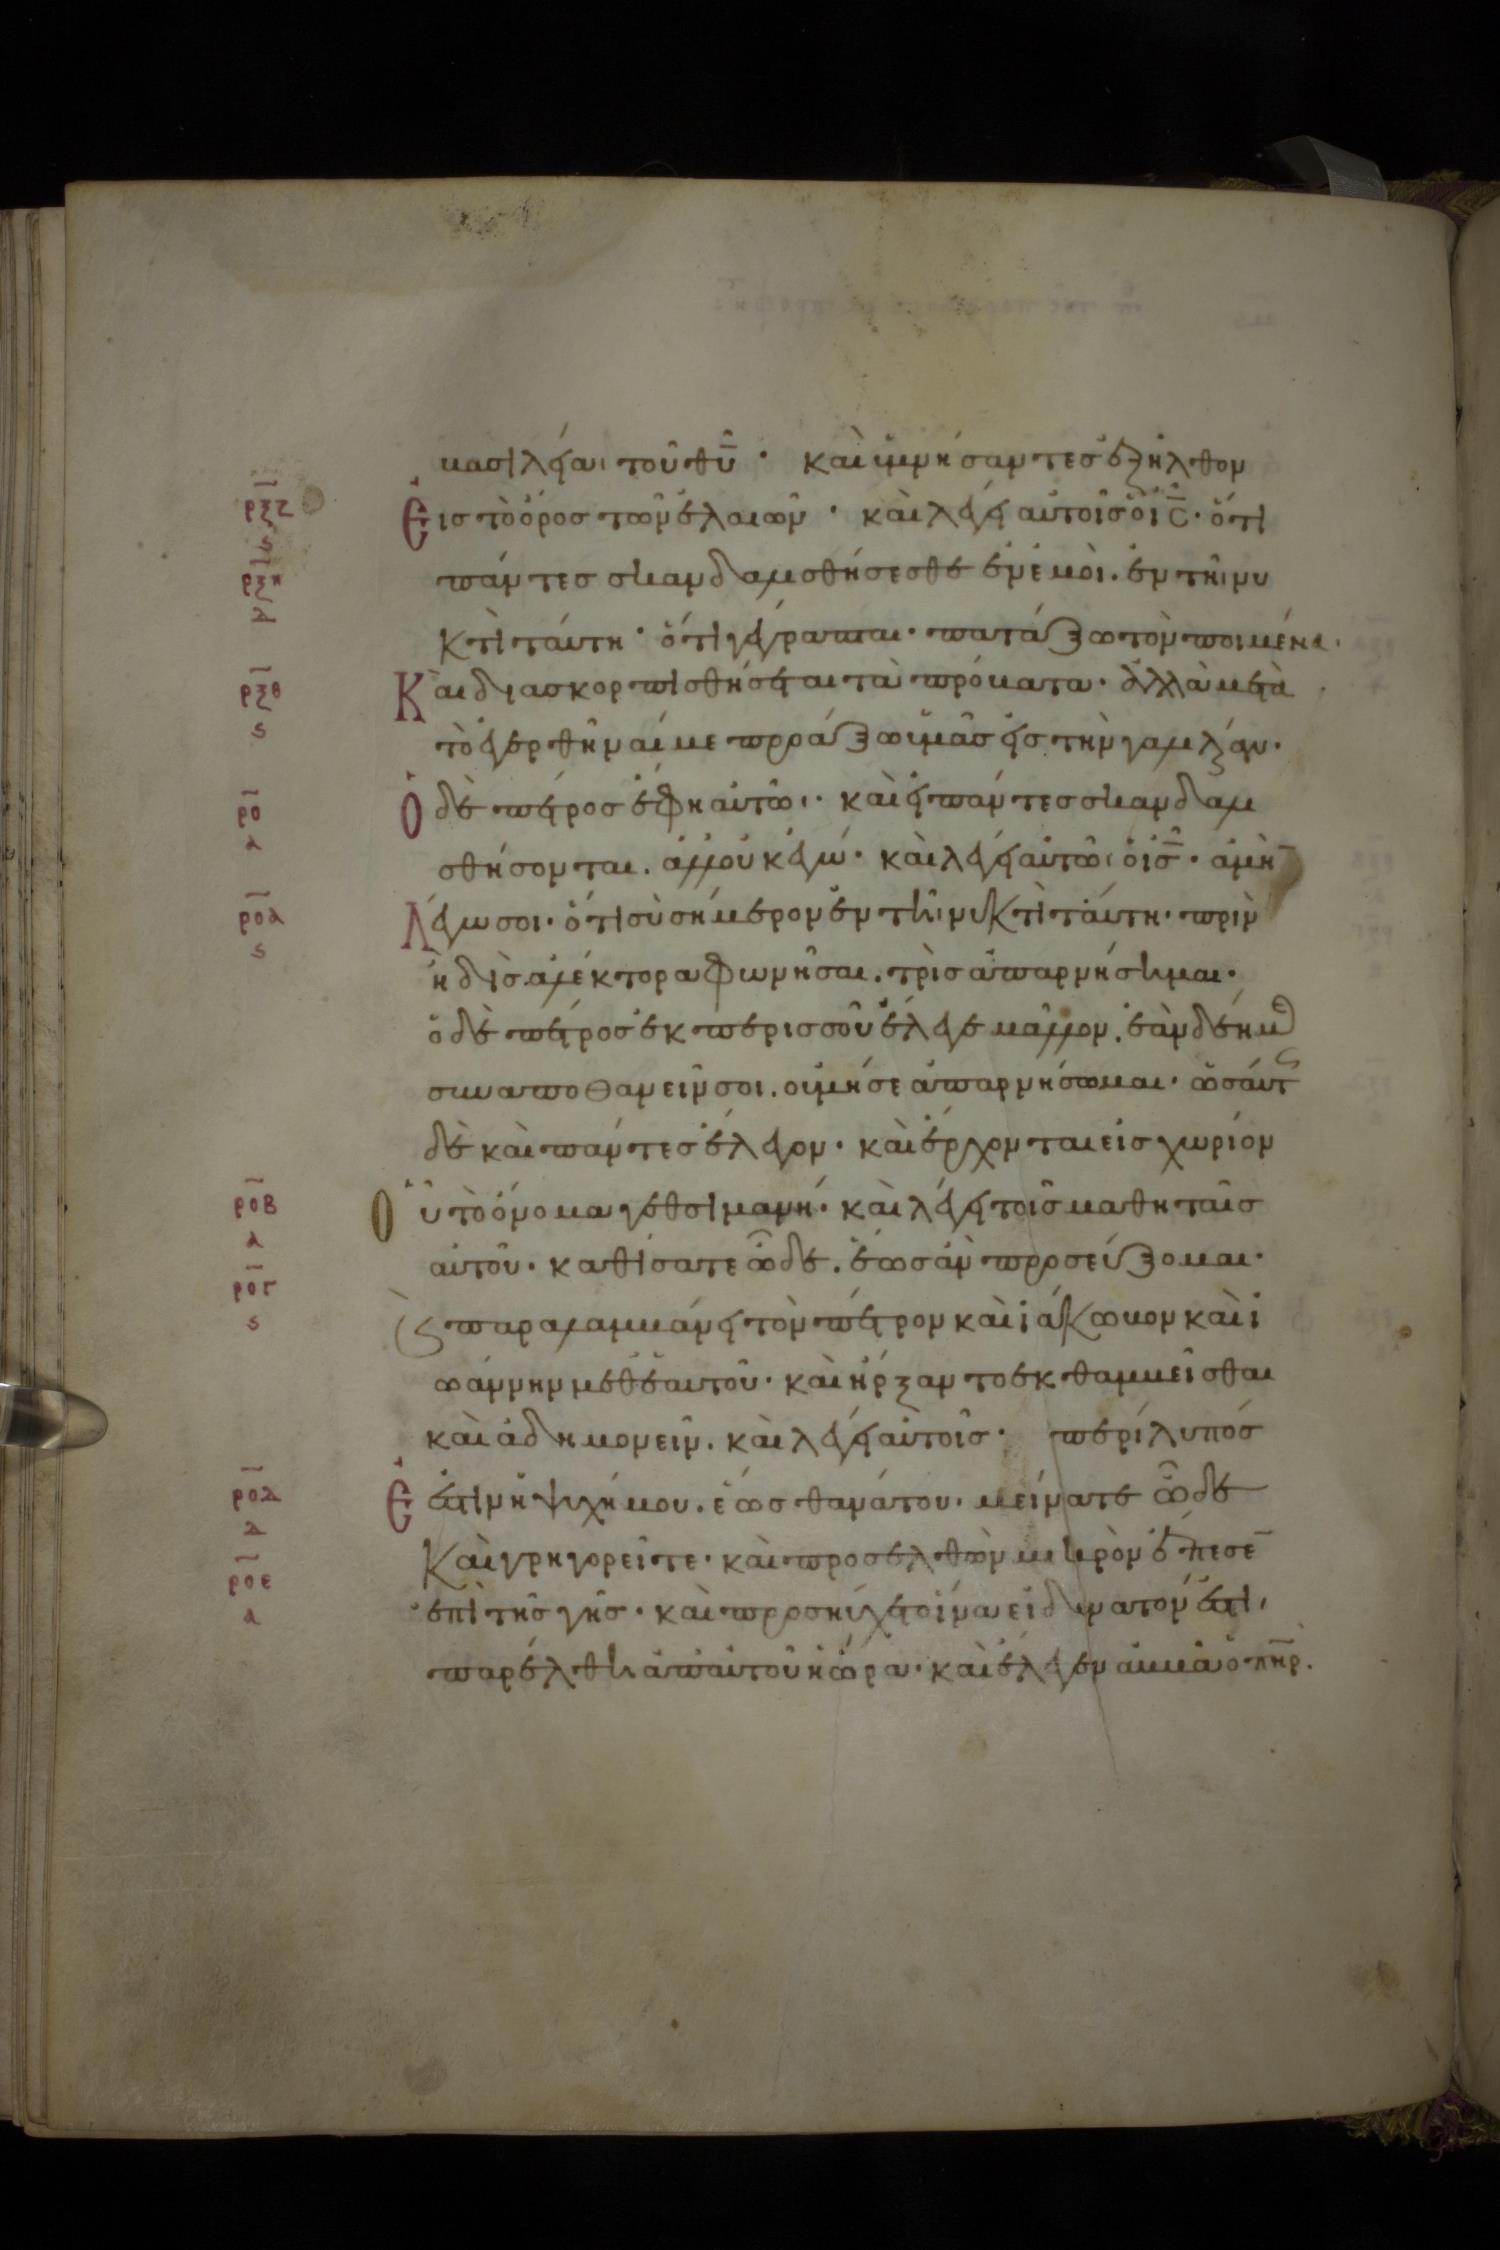 βασιλεία τοῦ θῡ· καὶ ὑμνήσαντες ἐξῆλθον
ρξζ
ς
Εἰς τὸ ὄρος τῶν ἐλαιῶν· καὶ λέγει αὐτοῖς ὁ ῑς̄· ὅτι
ρξη
δ
πάντες σκανδαλισθήσεσθε ἐν ἐμοὶ. ἐν τῆι νυ
κτὶ ταύτη· ὅτι γέγραπται· πατάξω τὸν ποιμένα.
ρξθ
ς
Καὶ διασκορπισθήσεται τὰ πρόβατα· ἀλλὰ μετὰ
τὸ ἐγερθῆναί με προάξω ὑμᾶς εἰς τὴν γαλιλαίαν·
ρο
α
Ὁ δὲ πέτρος ἔφη αὐτῶι· καὶ εἰ πάντες σκανδαλι
σθήσονται. ἀλλ' οὐκ ἐγώ· καὶ λέγει αὐτῶι ὁ ῑς̄· ἀμὴν
ροα
ς
Λέγω σοι· ὅτι σὺ σήμερον ἐν τῆι νυκτὶ ταύτη· πρὶν
ἢ δὶς ἀλέκτορα φωνῆσαι. τρὶς ἀπαρνήσει με·
ὁ δὲ πέτρος ἐκ περισσοῦ ἔλεγε μᾶλλον. ἐὰν δέη με
συναποθανεῖν σοι. οὐ μή σε ἀπαρνήσωμαι· ὡσάυτ
δὲ καὶ πάντες ἔλεγον· καὶ ἔρχονται εἰς χωρίον
ροβ
α
Οὗ τὸ ὄνομα γεθσιμανή· καὶ λέγει τοῖς μαθηταῖς
ρογ
ς
αὐτοῦ· καθίσατε ὧδε. ἕως ἂν προσεύξομαι·
Ϗ παραλαμβάνει τὸν πέτρον καὶ ἰάκωβον καὶ ἰ
ωάννην μεθ' ἑαυτοῦ· καὶ ἤρξαντο ἐκθαμβεῖσθαι
καὶ ἀδημονεῖν. καὶ λέγει αὐτοῖς· περίλυπός
ροδ
δ
Ἐστιν ἡ ψυχή μου. ἕως θανάτου. μείνατε ὧδε
ροε
α
Καὶ γρηγορεῖτε· καὶ προσελθὼν μικρὸν ἔπεσε
ἐπὶ τῆς γῆς· καὶ προσηύχετο ἵνα εἰ δυνατόν ἐστι,
παρέλθη ἀπ' αὐτοῦ ἡ ὥρα· καὶ ἔλεγεν ἀββᾶ ὁ πη̄ρ.